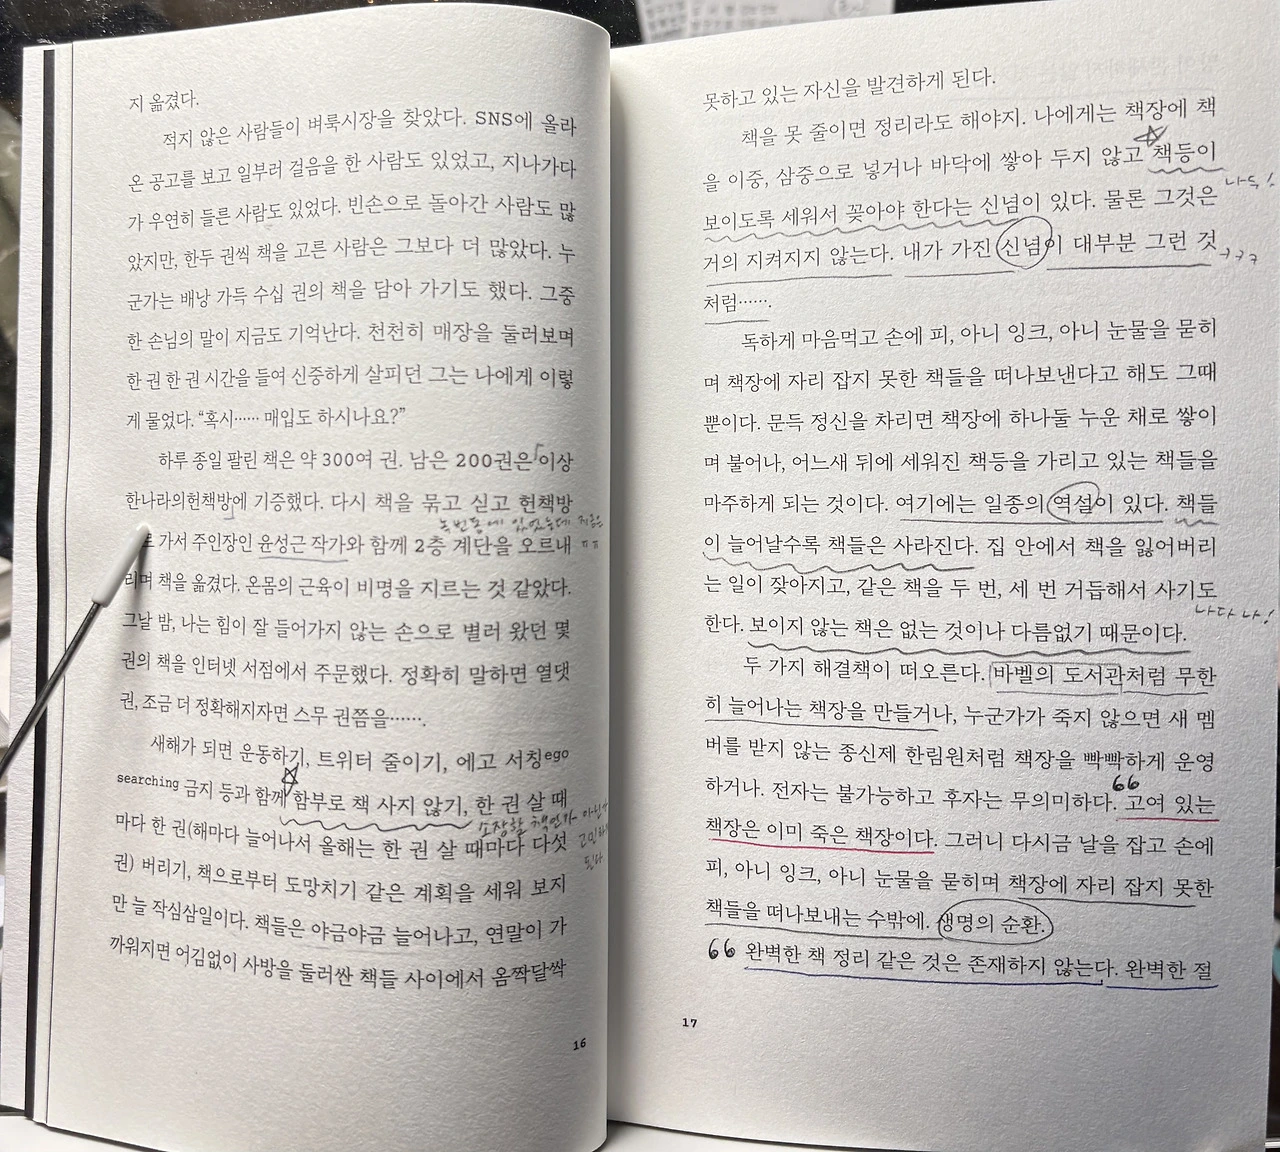 지 옮겼다.
적지 않은 사람들이 벼룩시장을 찾았다. SNS에 올라
온 공고를 보고 일부러 걸음을 한 사람도 있었고, 지나가다
가 우연히 들른 사람도 있었다. 빈손으로 돌아간 사람도 많
았지만, 한두 권씩 책을 고른 사람은 그보다 더 많았다. 누
군가는 배낭 가득 수십 권의 책을 담아 가기도 했다. 그중
한 손님의 말이 지금도 기억난다. 천천히 매장을 둘러보며
한 권 한 권 시간을 들여 신중하게 살피던 그는 나에게 이렇
게 물었다. “혹시…… 매입도 하시나요?”
하루 종일 팔린 책은 약 300여 권. 남은 200권은 이상
한나라의헌책방에 기증했다. 다시 책을 묶고 싣고 헌책방
녹번동에 있었는데 지금은 ㅠㅠ
로 가서 주인장인 윤성근 작가와 함께 2층 계단을 오르내
리며 책을 옮겼다. 온몸의 근육이 비명을 지르는 것 같았다.
그날 밤, 나는 힘이 잘 들어가지 않는 손으로 별러 왔던 몇
권의 책을 인터넷 서점에서 주문했다. 정확히 말하면 열댓
권, 조금 더 정확해지자면 스무 권쯤을…….
새해가 되면 운동하기, 트위터 줄이기, 에고 서칭ego
searching 금지 등과 함께 함부로 책 사지 않기, 한 권 살 때
소장할 책인가 아닌가 고민하게 된다
마다 한 권(해마다 늘어나서 올해는 한 권 살 때마다 다섯
권) 버리기, 책으로부터 도망치기 같은 계획을 세워 보지
만 늘 작심삼일이다. 책들은 야금야금 늘어나고, 연말이 가
까워지면 어김없이 사방을 둘러싼 책들 사이에서 옴짝달싹
16
못하고 있는 자신을 발견하게 된다.
책을 못 줄이면 정리라도 해야지. 나에게는 책장에 책
을 이중, 삼중으로 넣거나 바닥에 쌓아 두지 않고 책등이
나두!
보이도록 세워서 꽂아야 한다는 신념이 있다. 물론 그것은
거의 지켜지지 않는다. 내가 가진 신념이 대부분 그런 것
ㅋㅋㅋ
처럼…….
독하게 마음먹고 손에 피, 아니 잉크, 아니 눈물을 묻히
며 책장에 자리 잡지 못한 책들을 떠나보낸다고 해도 그때
뿐이다. 문득 정신을 차리면 책장에 하나둘 누운 채로 쌓이
며 불어나, 어느새 뒤에 세워진 책등을 가리고 있는 책들을
마주하게 되는 것이다. 여기에는 일종의 역설이 있다. 책들
이 늘어날수록 책들은 사라진다. 집 안에서 책을 잃어버리
는 일이 잦아지고, 같은 책을 두 번, 세 번 거듭해서 사기도
나다 나!
한다. 보이지 않는 책은 없는 것이나 다름없기 때문이다.
두 가지 해결책이 떠오른다. 바벨의 도서관처럼 무한
히 늘어나는 책장을 만들거나, 누군가가 죽지 않으면 새 멤
버를 받지 않는 종신제 한림원처럼 책장을 빡빡하게 운영
하거나. 전자는 불가능하고 후자는 무의미하다. 고여 있는
책장은 이미 죽은 책장이다. 그러니 다시금 날을 잡고 손에
피, 아니 잉크, 아니 눈물을 묻히며 책장에 자리 잡지 못한
책들을 떠나보내는 수밖에. 생명의 순환.
완벽한 책 정리 같은 것은 존재하지 않는다. 완벽한 절
17